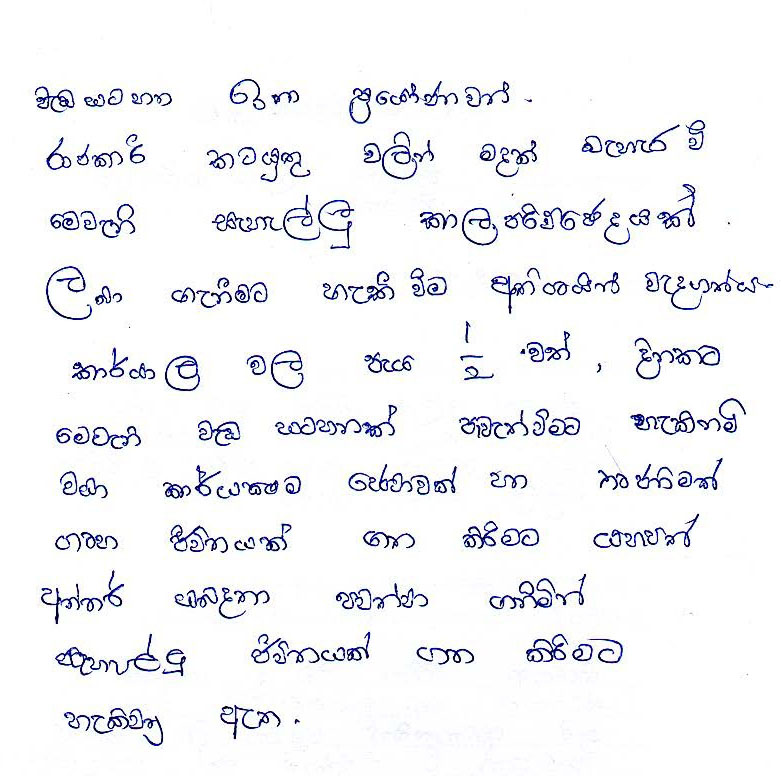 වැඩ සටහන ඉතා ප්‍රයෝජනවත්.
රාජකාරි කටයුතු වලින් මදක් බැහැර වී
මෙවැනි සැහැල්ලු කාල පරිච්ඡෙදයක්
ලබා ගැනීමට හැකි වීම අතිශයින් වැදගත්ය.
කාර්යාල වල පැය 1/2 වත්, දිනකට
මෙවැනි වැඩ සටහනක් පැවැත්වීමට හැකිනම්
වඩා කාර්යක්ෂම සේවාවක් හා තෘප්තිමත්
ගත ජීවිතයක් ගත කිරීමට යහපත්
අන්තර් සබදතා පවත්වා ගනිමින්
සැහැල්ලු ජීවිතයක් ගත කිරීමට
හැකිවනු ඇත.